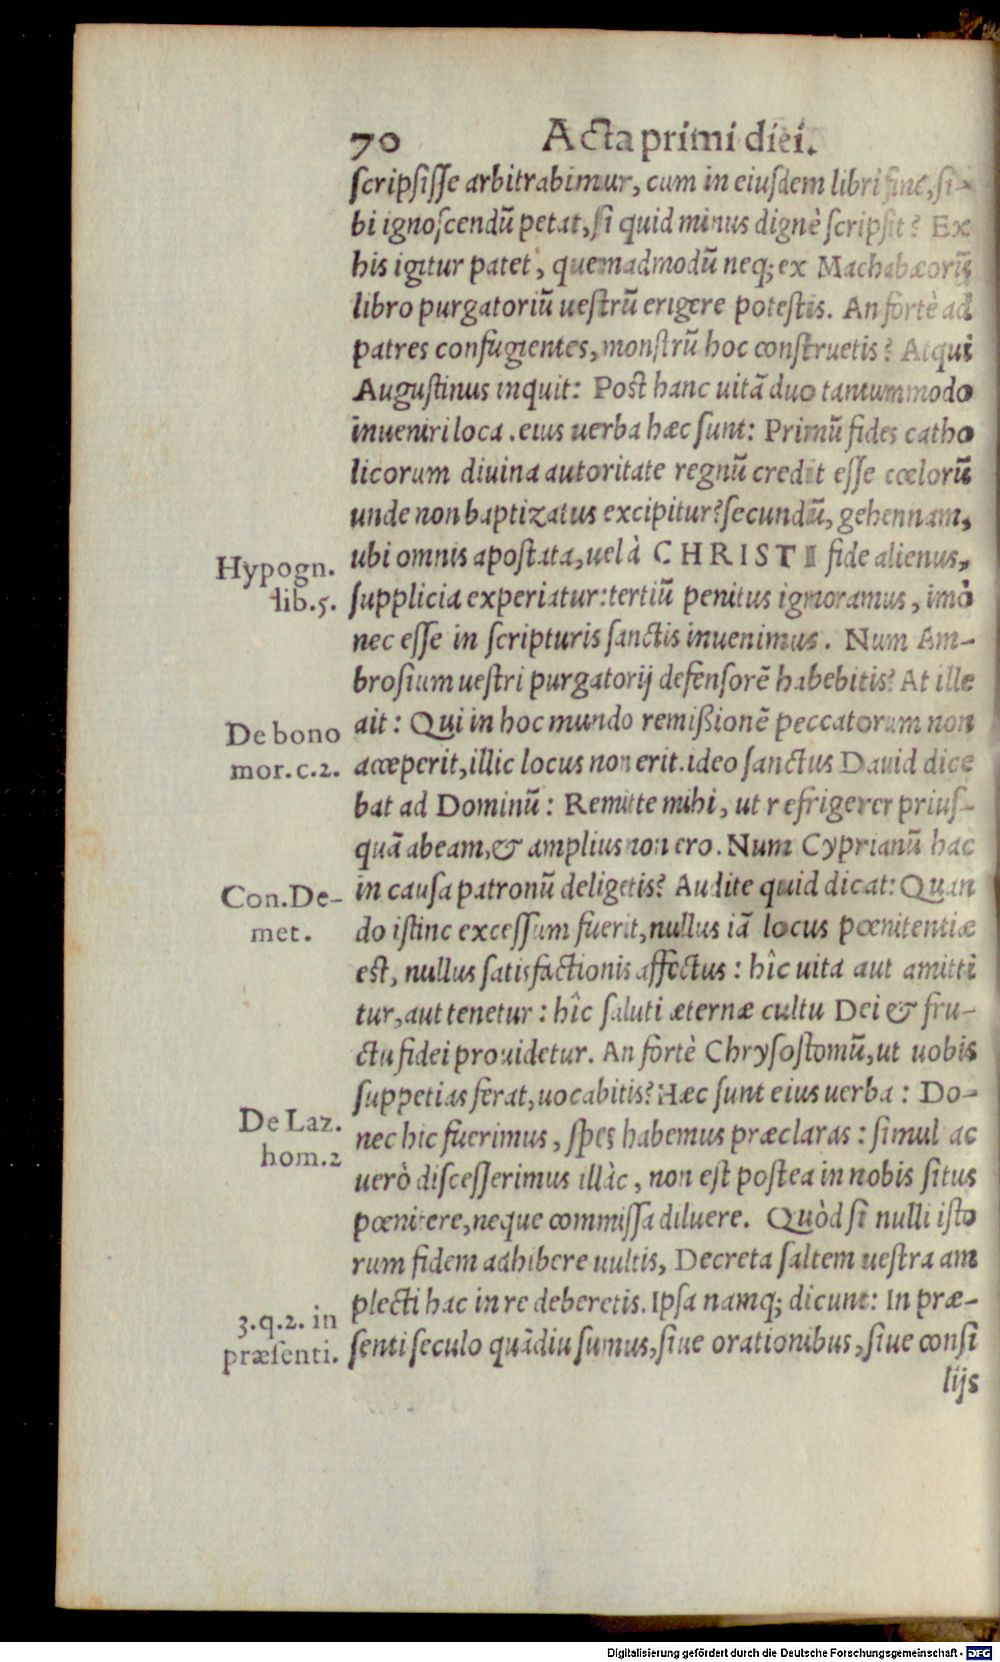 70 Acta primi diei.
ſcripſiſſe arbitrabimur, cum in eiuſdem libri fine, ſi-
bi ignoſcendũ petat, ſi quid minus dignè ſcripſit? Ex
his igitur patet, quemadmodũ neq; ex Machabæorũ
libro purgatoriũ ueſtrũ erigere poteſtis. An fortè ad
patres confugientes, monſtrũ hoc conſtruetis? Atqui
Auguſtinus inquit: Poſt hanc uitã duo tantummodo
inueniri loca. eius uerba hæc ſunt: Primũ fides catho
licorum diuina autoritate regnũ credit eſſe cœlorũ
unde non baptizatus excipitur? ſecundũ, gehennam,
Hypogn.
lib.5.
ubi omnis apoſtata, uel à CHRISTI fide alienus,
ſupplicia experiatur: tertiũ penitus ignoramus, imò
nec eſſe in ſcripturis ſanctis inuenimus. Num Am-
broſium ueſtri purgatorij defenſorẽ habebitis? At ille
De bono
mor. c.2.
ait: Qui in hoc mundo remißionẽ peccatorum non
acceperit, illic locus non erit. ideo ſanctus Dauid dice
bat ad Dominũ: Remitte mihi, ut refrigerer priuſ-
quã abeam, & amplius non ero. Num Cyprianũ hac
Con. De-
met.
in cauſa patronũ deligetis? Audite quid dicat: Quan
do iſtinc exceſſum fuerit, nullus iã locus pœnitentiæ
eſt, nullus ſatisfactionis affectus: hîc uita aut amitti
tur, aut tenetur: hîc ſaluti æternæ cultu Dei & fru-
ctu fidei prouidetur. An fortè Chryſoſtomũ, ut uobis
ſuppetias ferat, uocabitis? Hæc ſunt eius uerba: Do-
De Laz.
hom.2
nec hic fuerimus, ſpes habemus præclaras: ſimul ac
uerò diſceſſerimus illàc, non eſt poſtea in nobis ſitus
pœnitere, neque commiſſa diluere. Quòd ſi nulli iſto
rum fidem adhibere uultis, Decreta ſaltem ueſtra am
3.q.2. in
præſenti.
plecti hac in re deberetis. Ipſa namq; dicunt: In præ-
ſenti ſeculo quãdiu ſumus, ſiue orationibus, ſiue conſi
lijs
Digitalisierung gefördert durch die Deutsche Forschungsgemeinschaft - DFG